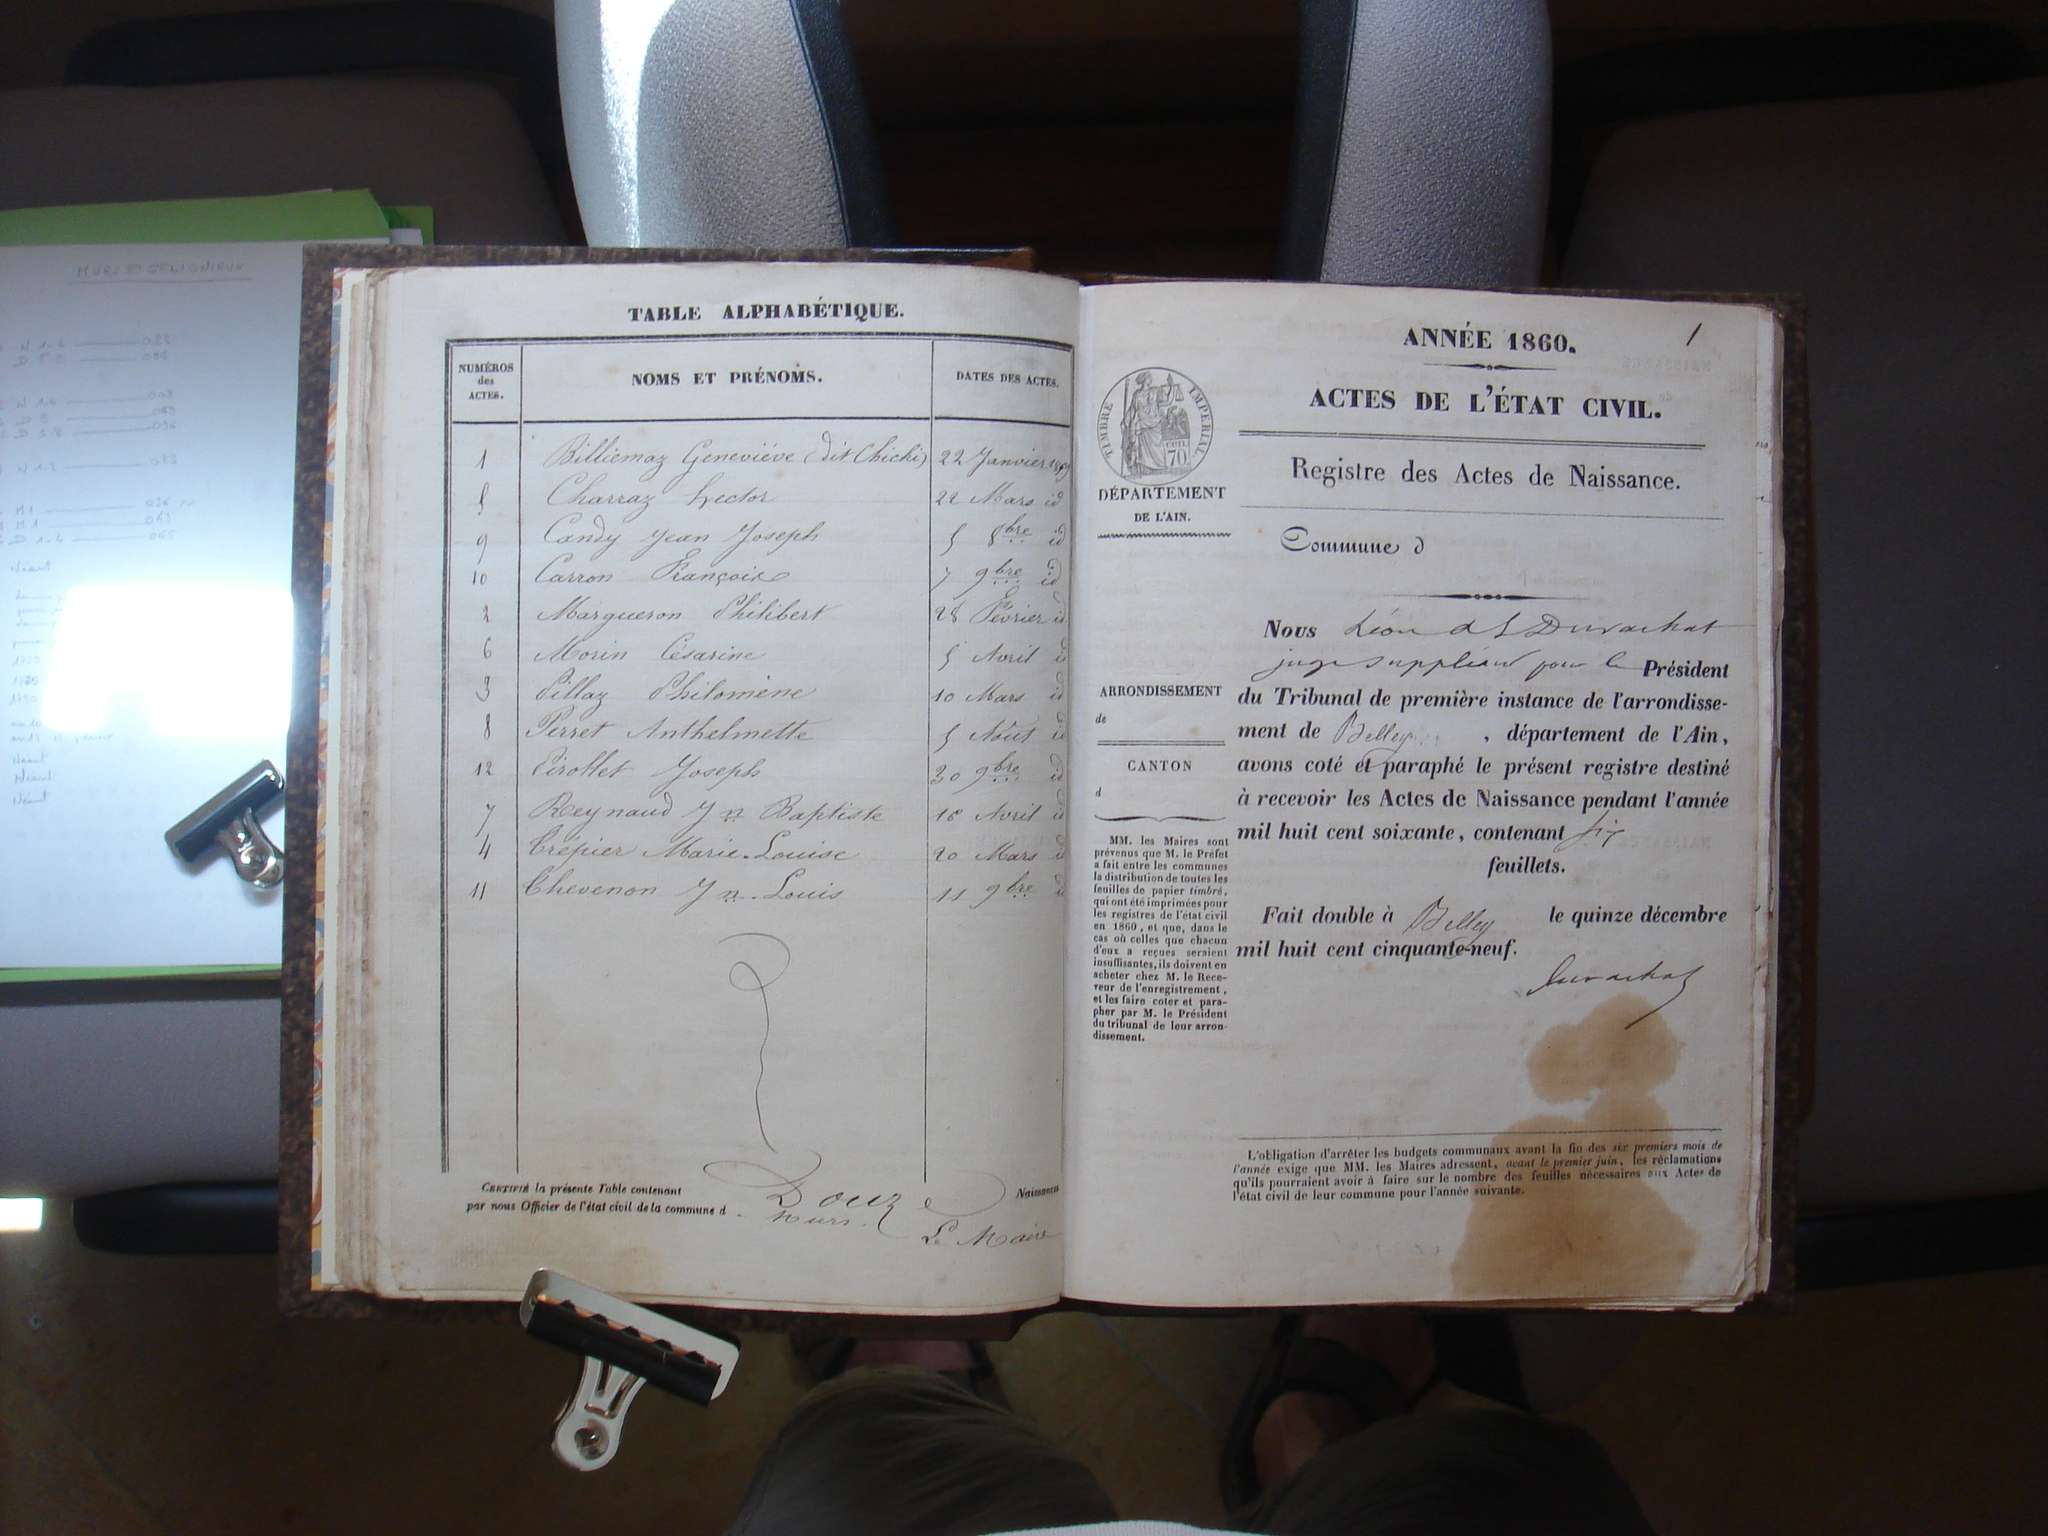 MURS ET GELIGNIEUX
TABLE ALPHABÉTIQUE.
NUMÉROS des ACTES. NOMS ET PRÉNOMS. DATES DES ACTES.
1 Billiemaz Geneviève (dit Chichi) 22 Janvier
5 Charraz hector 22 Mars id
9 Candy Jean Joseph 5 8bre id
10 Carron François 7 9bre id
2 Margueron Philibert 28 Février id
6 Morin Césarine 5 Avril id
3 Pillaz Philomène 10 Mars id
8 Perret Anthelmette 5 Août id
12 Pirollet Joseph 30 9bre id
7 Reynaud Jn Baptiste 18 Avril id
4 Crépier Marie-Louise 20 Mars id
11 Thevenon Jn-Louis 11 9bre id
CERTIFIÉ la présente Table contenant Douze Naissances
par nous Officier de l'état civil de la commune d Murs.
Le Maire
1
ANNÉE 1860.
ACTES DE L'ÉTAT CIVIL.
Registre des Actes de Naissance.
TIMBRE IMPÉRIAL
CENT. 70
DÉPARTEMENT
DE L'AIN.
Commune d
ARRONDISSEMENT
de
CANTON
d
MM. les Maires sont
prévenus que M. le Préfet
a fait entre les communes
la distribution de toutes les
feuilles de papier timbré,
qui ont été imprimées pour
les registres de l'état civil
en 1860, et que, dans le
cas où celles que chacun
d'eux a reçues seraient
insuffisantes, ils doivent en
acheter chez M. le Rece-
veur de l'enregistrement,
et les faire coter et para-
pher par M. le Président
du tribunal de leur arron-
dissement.
Nous Léon Duvachat
juge suppléant pour le Président
du Tribunal de première instance de l'arrondisse-
ment de Belley, département de l'Ain,
avons coté et paraphé le présent registre destiné
à recevoir les Actes de Naissance pendant l'année
mil huit cent soixante, contenant six
feuillets.
Fait double à Belley le quinze décembre
mil huit cent cinquante-neuf.
Duvachat
L'obligation d'arrêter les budgets communaux avant la fin des six premiers mois de
l'année exige que MM. les Maires adressent, avant le premier juin, les réclamations
qu'ils pourraient avoir à faire sur le nombre des feuilles nécessaires aux Actes de
l'état civil de leur commune pour l'année suivante.